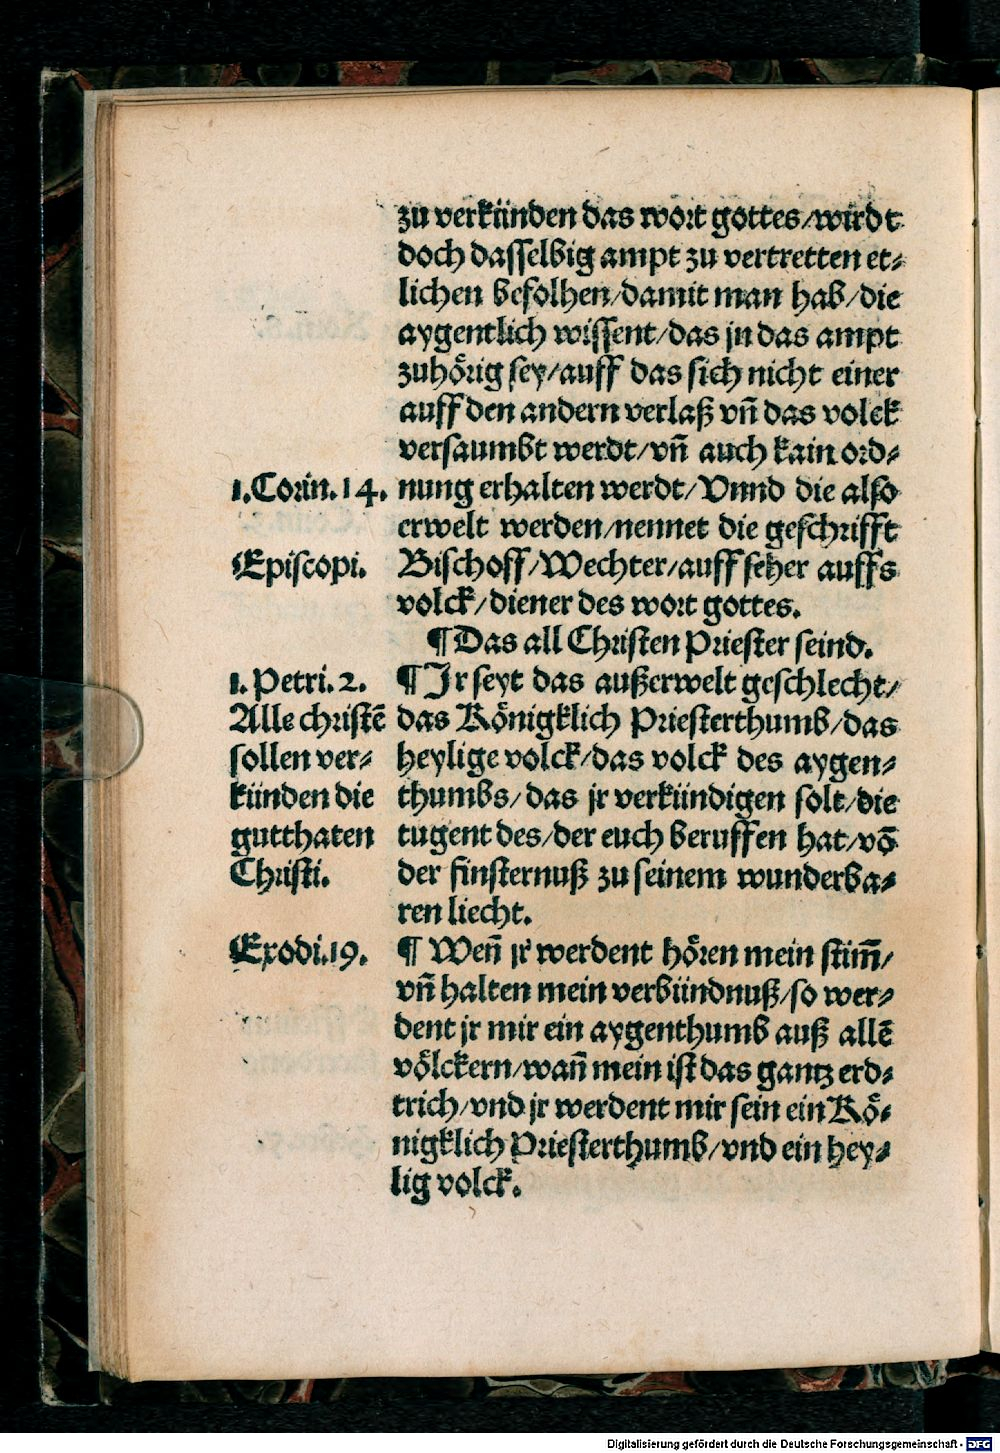 zu verkünden das wort gottes/wirdt
doch dasselbig ampt zu vertretten et⸗
lichen befolhen/damit man hab/die
aygentlich wissent/das jn das ampt
zuhörig sey/auff das sich nicht einer
auff den andern verlaß vñ das volck
versaumbt werdt/vñ auch kain ord⸗
1.Corin.14.
nung erhalten werdt/Vnnd die also
erwelt werden/nennet die geschrifft
Episcopi.
Bischoff/Wechter/auff seher auffs
volck/diener des wort gottes.
¶Das all Christen Priester seind.
1. Petri. 2.
Alle christē
sollen ver⸗
künden die
gutthaten
Christi.
¶ Jr seyt das außerwelt geschlecht/
das Königklich Priesterthumb/das
heylige volck/das volck des aygen⸗
thumbs/das jr verkündigen solt/die
tugent des/der euch beruffen hat/vō
der finsternuß zu seinem wunderba⸗
ren liecht.
Exodi.19.
¶ Weñ jr werdent hören mein stim̄/
vñ halten mein verbündnuß/so wer⸗
dent jr mir ein aygenthumb auß allē
völckern/wañ mein ist das gantz erd⸗
trich/vnd jr werdent mir sein ein Kö⸗
nigklich Priesterthumb/vnd ein hey⸗
lig volck.
Digitalisierung gefördert durch die Deutsche Forschungsgemeinschaft - DFG